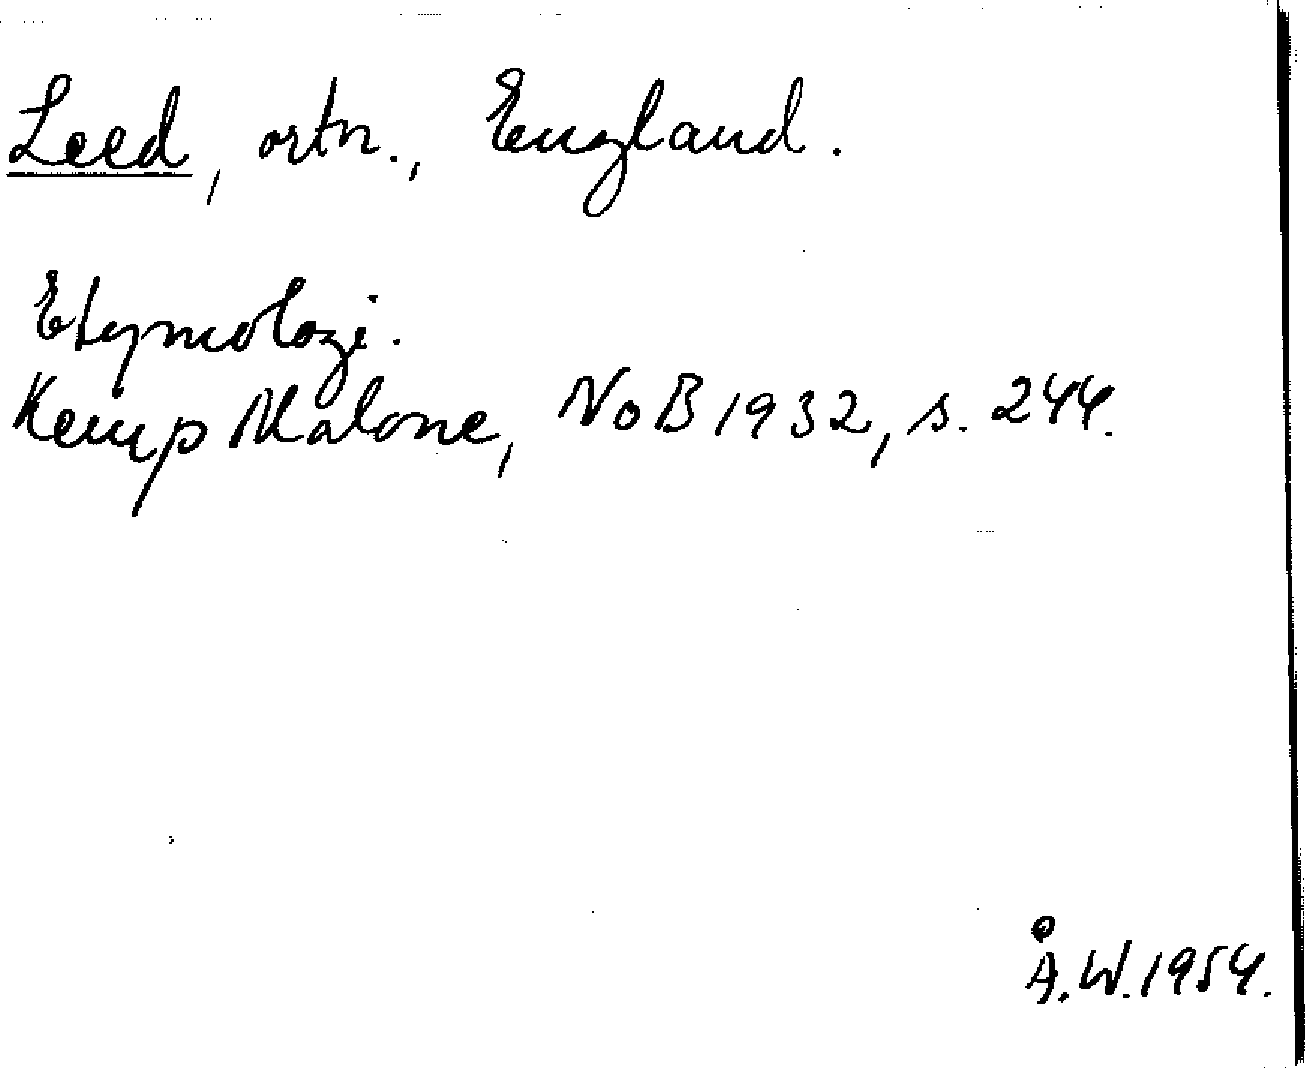 Leed, ortn., England.
Etymologi.
Kemp Malone, NoB 1932, s. 244.
Å.W. 1954.